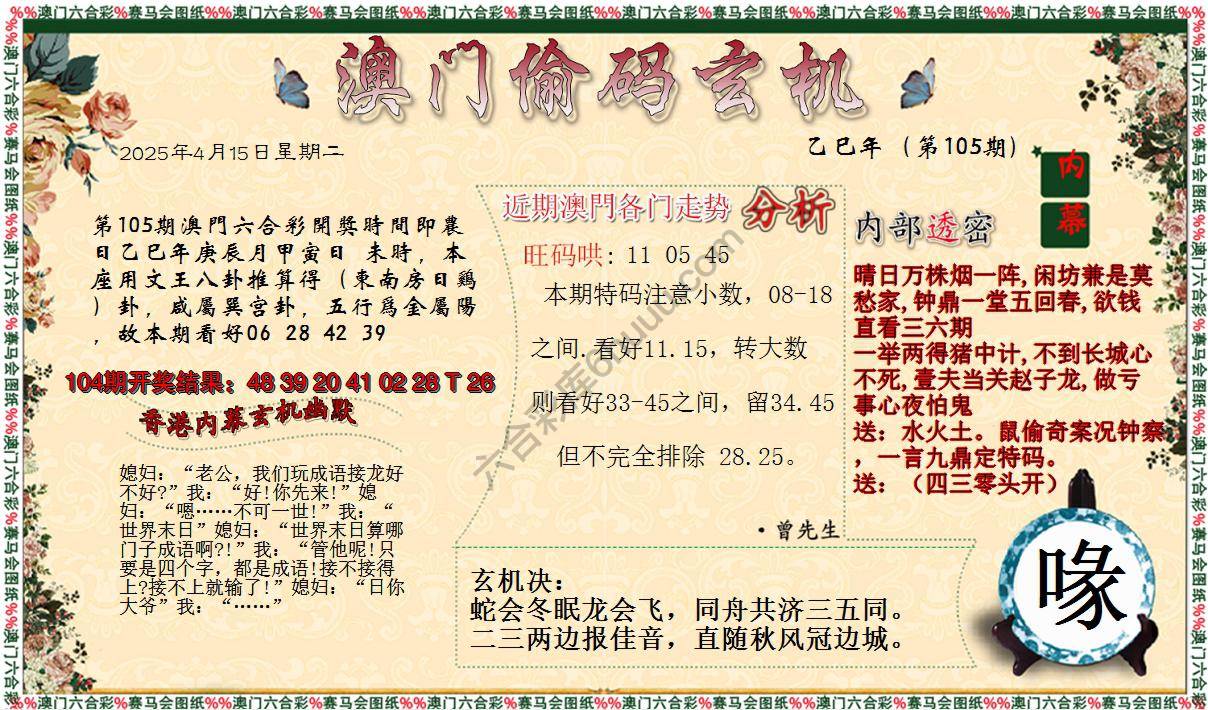 %%澳门六合彩%赛马会图纸%%澳门六合彩%赛马会图纸%%澳门六合彩%赛马会图纸%%澳门六合彩%赛马会图纸%%澳门六合彩%赛马会图纸%%澳门六合彩%赛马会图纸%%
澳门偷码玄机
2025年4月15日星期二
乙巳年（第105期）
内幕
第105期澳門六合彩開獎時間即農
日乙巳年庚辰月甲寅日 未時，本
座用文王八卦推算得（東南房日鷄
）卦，咸屬巽宫卦，五行爲金屬陽
，故本期看好06 28 42 39
104期开奖结果：48 39 20 41 02 28 T 26
香港内幕玄机幽默
媳妇：“老公，我们玩成语接龙好
不好?”我：“好!你先来!”媳
妇：“嗯……不可一世!”我：“
世界末日”媳妇：“世界末日算哪
门子成语啊?!”我：“管他呢!只
要是四个字，都是成语!接不接得
上?接不上就输了!”媳妇：“日你
大爷”我：“……”
近期澳門各门走势 分析
旺码哄: 11 05 45
本期特码注意小数，08-18
之间.看好11.15，转大数
则看好33-45之间，留34.45
但不完全排除 28.25。
·曾先生
内部透密
晴日万株烟一阵,闲坊兼是莫
愁家,钟鼎一堂五回春,欲钱
直看三六期
一举两得猪中计,不到长城心
不死,壹夫当关赵子龙,做亏
事心夜怕鬼
送：水火土。鼠偷奇案况钟察
，一言九鼎定特码。
送：（四三零头开）
玄机决：
蛇会冬眠龙会飞，同舟共济三五同。
二三两边报佳音，直随秋风冠边城。
喙
%%澳门六合彩%赛马会图纸%%澳门六合彩%赛马会图纸%%澳门六合彩%赛马会图纸%%澳门六合彩%赛马会图纸%%澳门六合彩%赛马会图纸%%澳门六合彩%赛马会图纸%%